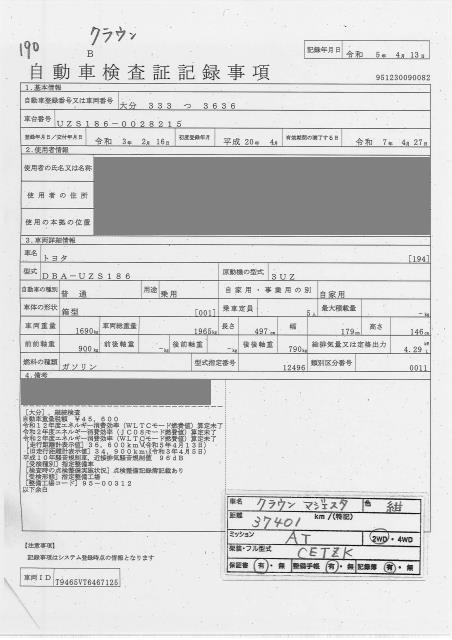 190
クラウン
B
記録年月日 令和 5年 4月 13日
自動車検査証記録事項
951230090082
1.基本情報
自動車登録番号又は車両番号 大分 333 つ 3636
車台番号 UZS186-0028215
登録年月日/交付年月日 令和 3年 2月 16日 初度登録年月 平成 20年 4月 有効期間の満了する日 令和 7年 4月 27日
2.使用者情報
使用者の氏名又は名称
使用者の住所
使用の本拠の位置
3.車両詳細情報
車名 トヨタ [194]
型式 DBA-UZS186 原動機の型式 3UZ
自動車の種別 普通 用途 乗用 自家用・事業用の別 自家用
車体の形状 箱型 [001] 乗車定員 5人 最大積載量 -kg
車両重量 1690kg 車両総重量 1965kg 長さ 497cm 幅 179cm 高さ 146cm
前前軸重 900kg 前後軸重 -kg 後前軸重 -kg 後後軸重 790kg 総排気量又は定格出力 4.29
燃料の種類 ガソリン 型式指定番号 12496 類別区分番号 0011
4.備考
[大分],継続検査
自動車重量税額 ¥45,600
令和12年度エネルギー消費効率(WLTCモード燃費値)算定未了
令和2年度エネルギー消費効率(JC08モード燃費値)算定未了
令和2年度エネルギー消費効率(WLTCモード燃費値)算定未了
[走行距離計表示値]36,600km(令和5年4月13日)
[旧走行距離計表示値]34,900km(令和3年4月5日)
平成10年騒音規制車、近接排気騒音規制値 96dB
[受検種別]指定整備車
[検査時の点検整備実施状況]点検整備記録簿記載あり
[受検形態]指定整備工場
[整備工場コード]95-00312
以下余白
車名 クラウン マジェスタ 色 紺
距離 37401 km/(特記)
ミッション AT 2WD・4WD
架装・フル型式 CETZK
保証書 有・無 整備手帳 有・無 記録簿 有・無
【注意事項】
記録事項はシステム登録時点の情報となります
車両ID T9465VT6467125